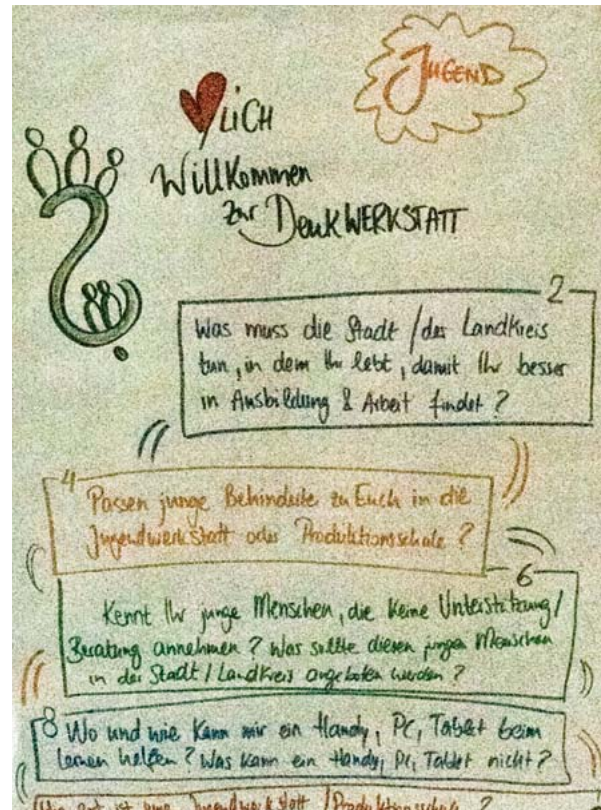 JUGEND
LICH
Willkommen
zur DenkWERKSTATT
2
Was muss die Stadt / der Landkreis
tun, in dem Ihr lebt, damit Ihr besser
in Ausbildung & Arbeit findet?
4
Passen junge Behinderte zu Euch in die
Jugendwerkstatt oder Produktionsschule?
6
Kennt Ihr junge Menschen, die keine Unterstützung/
Beratung annehmen? Was sollte diesen jungen Menschen
in der Stadt / Landkreis angeboten werden?
8 Wo und wie kann mir ein Handy, PC, Tablet beim
Lernen helfen? Was kann ein Handy, PC, Tablet nicht?
ist eine Jugendwerkstatt / Produktionsschule ?